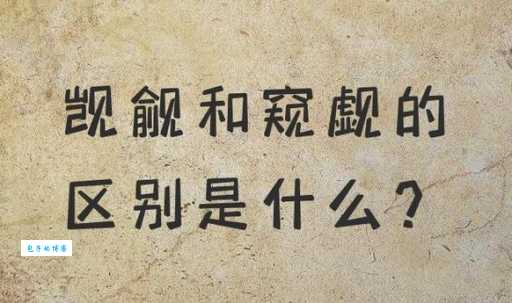 觊觎和窥觑的
区别是什么?
包子的博客